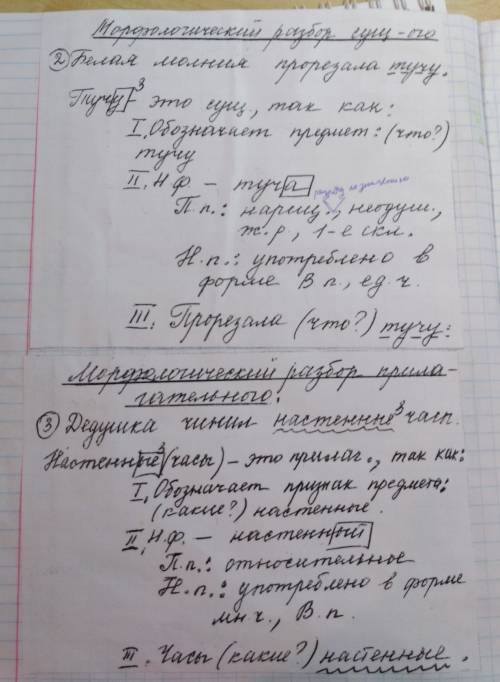 Морфологический разбор сущ-ого
② Белая молния прорезала тучу.
Тучу³ - это сущ., так как:
I. Обозначает предмет: (что?)
тучу
II. Н.ф. - туча
П.п.: нариц., неодуш.,
ж.р., 1-е скл.
Н.п.: употреблено в
форме В.п., ед.ч.
III. Прорезала (что?) тучу.
Морфологический разбор прила-
гательного.
③ Дедушка чинил настенные³ часы.
Настенные³ (часы) - это прилаг., так как:
I. Обозначает признак предмета:
(какие?) настенные.
II. Н.ф. - настенный
П.п.: относительное
Н.п.: употреблено в форме
мн.ч., В.п.
III. Часы (какие?) настенные.